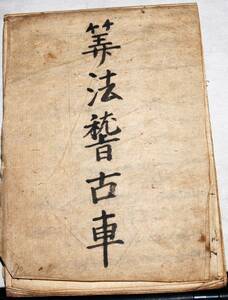 筭法稽古車